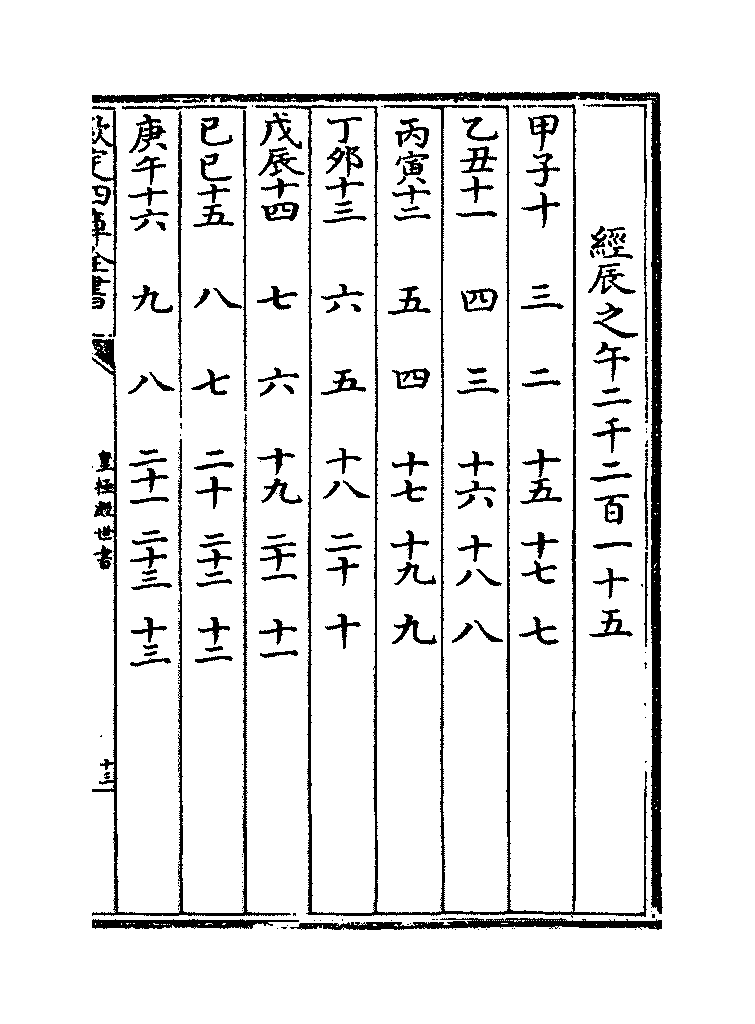 經辰之午二千二百一十五
甲子十 三 二 十五 十七 七
乙丑十一 四 三 十六 十八 八
丙寅十二 五 四 十七 十九 九
丁夘十三 六 五 十八 二十 十
戊辰十四 七 六 十九 二十一 十一
已已十五 八 七 二十 二十二 十二
庚午十六 九 八 二十一 二十三 十三
欽定四庫全書
皇極經世書
十三